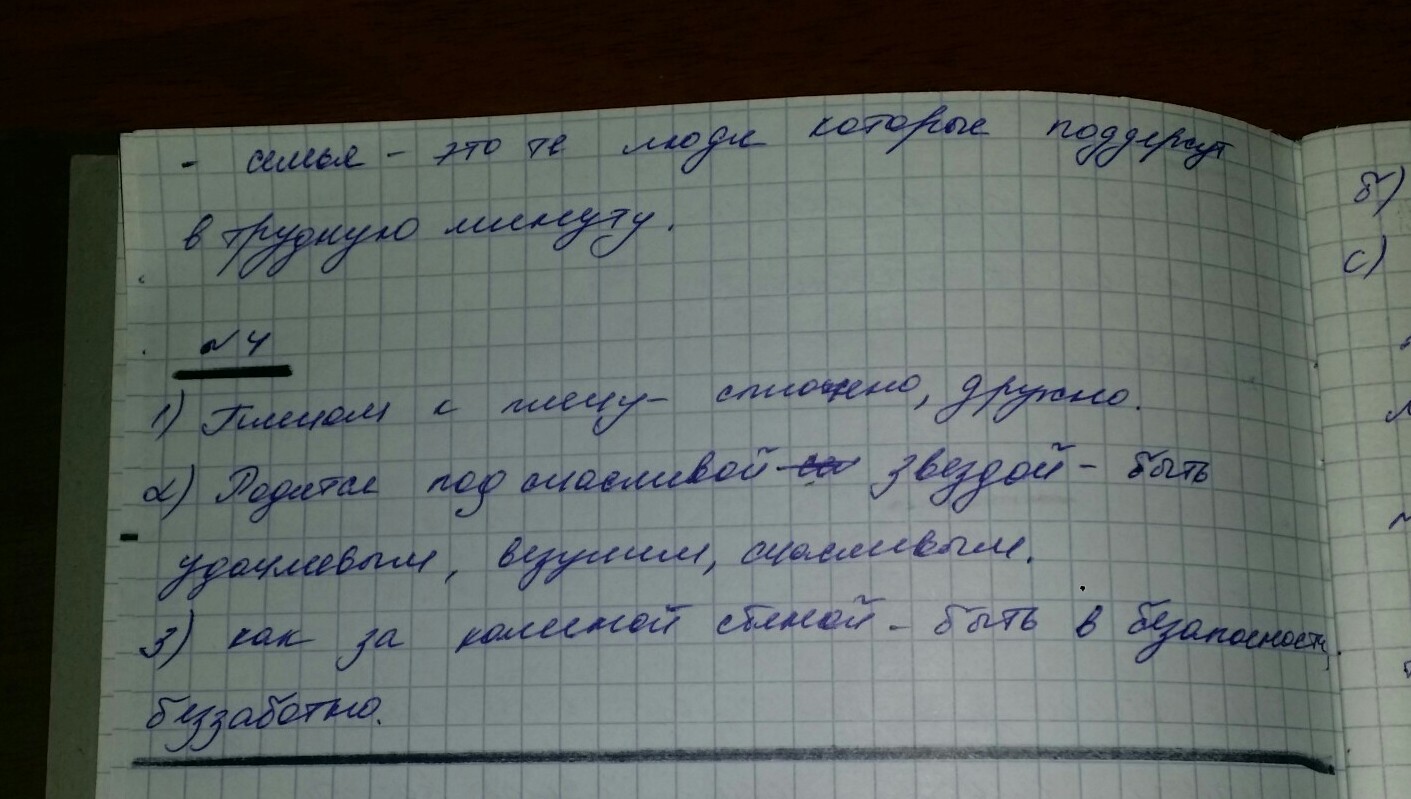 - семья - это те люди которые поддержут
в трудную минуту.
№4
1) Плечом к плечу - сплочено, дружно.
2) Родится под счасливой звездой - быть
удачливым, везучим, счасливым.
3) как за каменой стеной - быть в безапасности,
беззаботно.
б)
с)